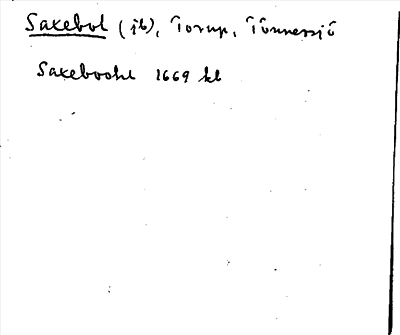 Saxebol (jb), Torup, Tönnersjö
Saxeboohl 1669 kl